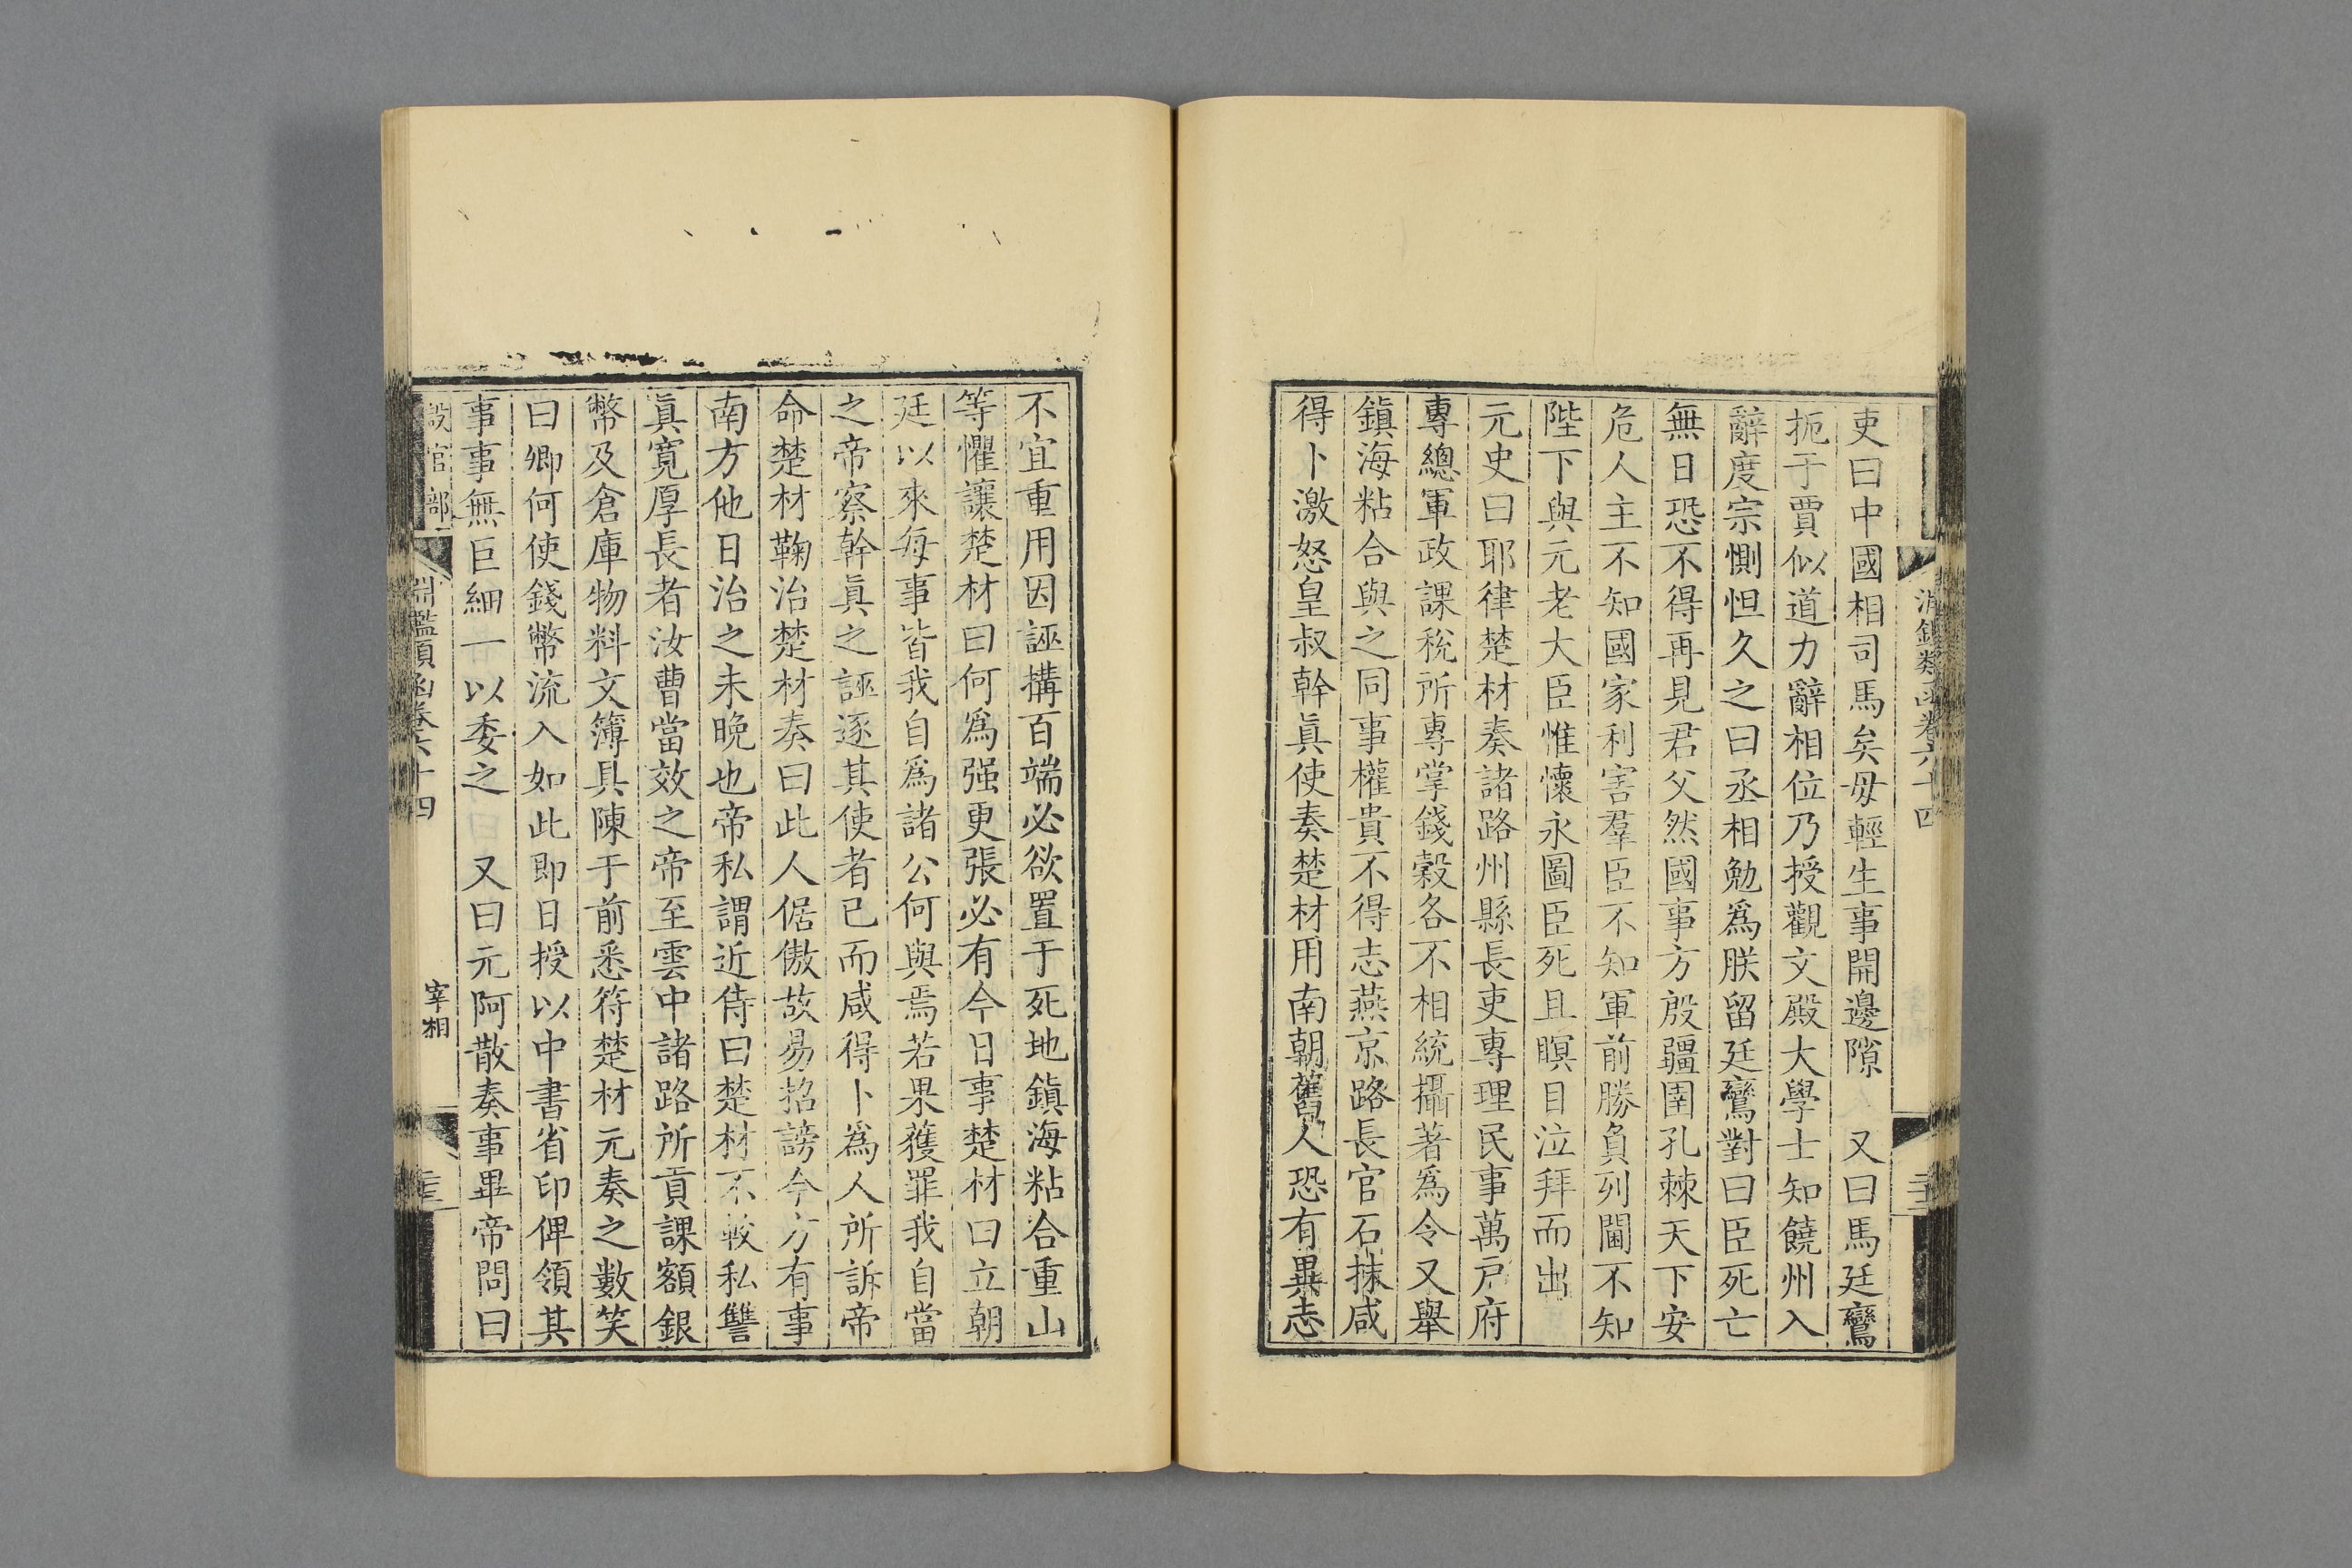 淵鑑類函卷六十四
吏曰中國相司馬矣毋輕生事開邊隙 又曰馬廷鸞
扼于賈似道力辭相位乃授觀文殿大學士知饒州入
辭度宗惻怛久之曰丞相勉爲朕留廷鸞對曰臣死亡
無日恐不得再見君父然國事方殷疆圉孔棘天下安
危人主不知國家利害羣臣不知軍前勝負列閫不知
陛下與元老大臣惟懷永圖臣死且瞑目泣拜而出
元史曰耶律楚材奏諸路州縣長吏專理民事萬戸府
專總軍政課稅所專掌錢穀各不相統攝著爲令又舉
鎭海粘合與之同事權貴不得志燕京路長官石抹咸
得卜激怒皇叔幹眞使奏楚材用南朝舊人恐有異志
不宜重用因誣搆百端必欲置于死地鎭海粘合重山
等懼讓楚材曰何爲强更張必有今日事楚材曰立朝
廷以來每事皆我自爲諸公何與焉若果獲罪我自當
之帝察幹眞之誣逐其使者已而咸得卜爲人所訴帝
命楚材鞠治楚材奏曰此人倨傲故易招謗今方有事
南方他日治之未晩也帝私謂近侍曰楚材不較私讐
眞寬厚長者汝曹當效之帝至雲中諸路所貢課額銀
幣及倉庫物料文簿具陳于前悉符楚材元奏之數笑
曰卿何使錢幣流入如此即日授以中書省印俾領其
事事無巨細一以委之 又曰元阿散奏事畢帝問曰
設官部 淵鑑類函卷六十四 宰相